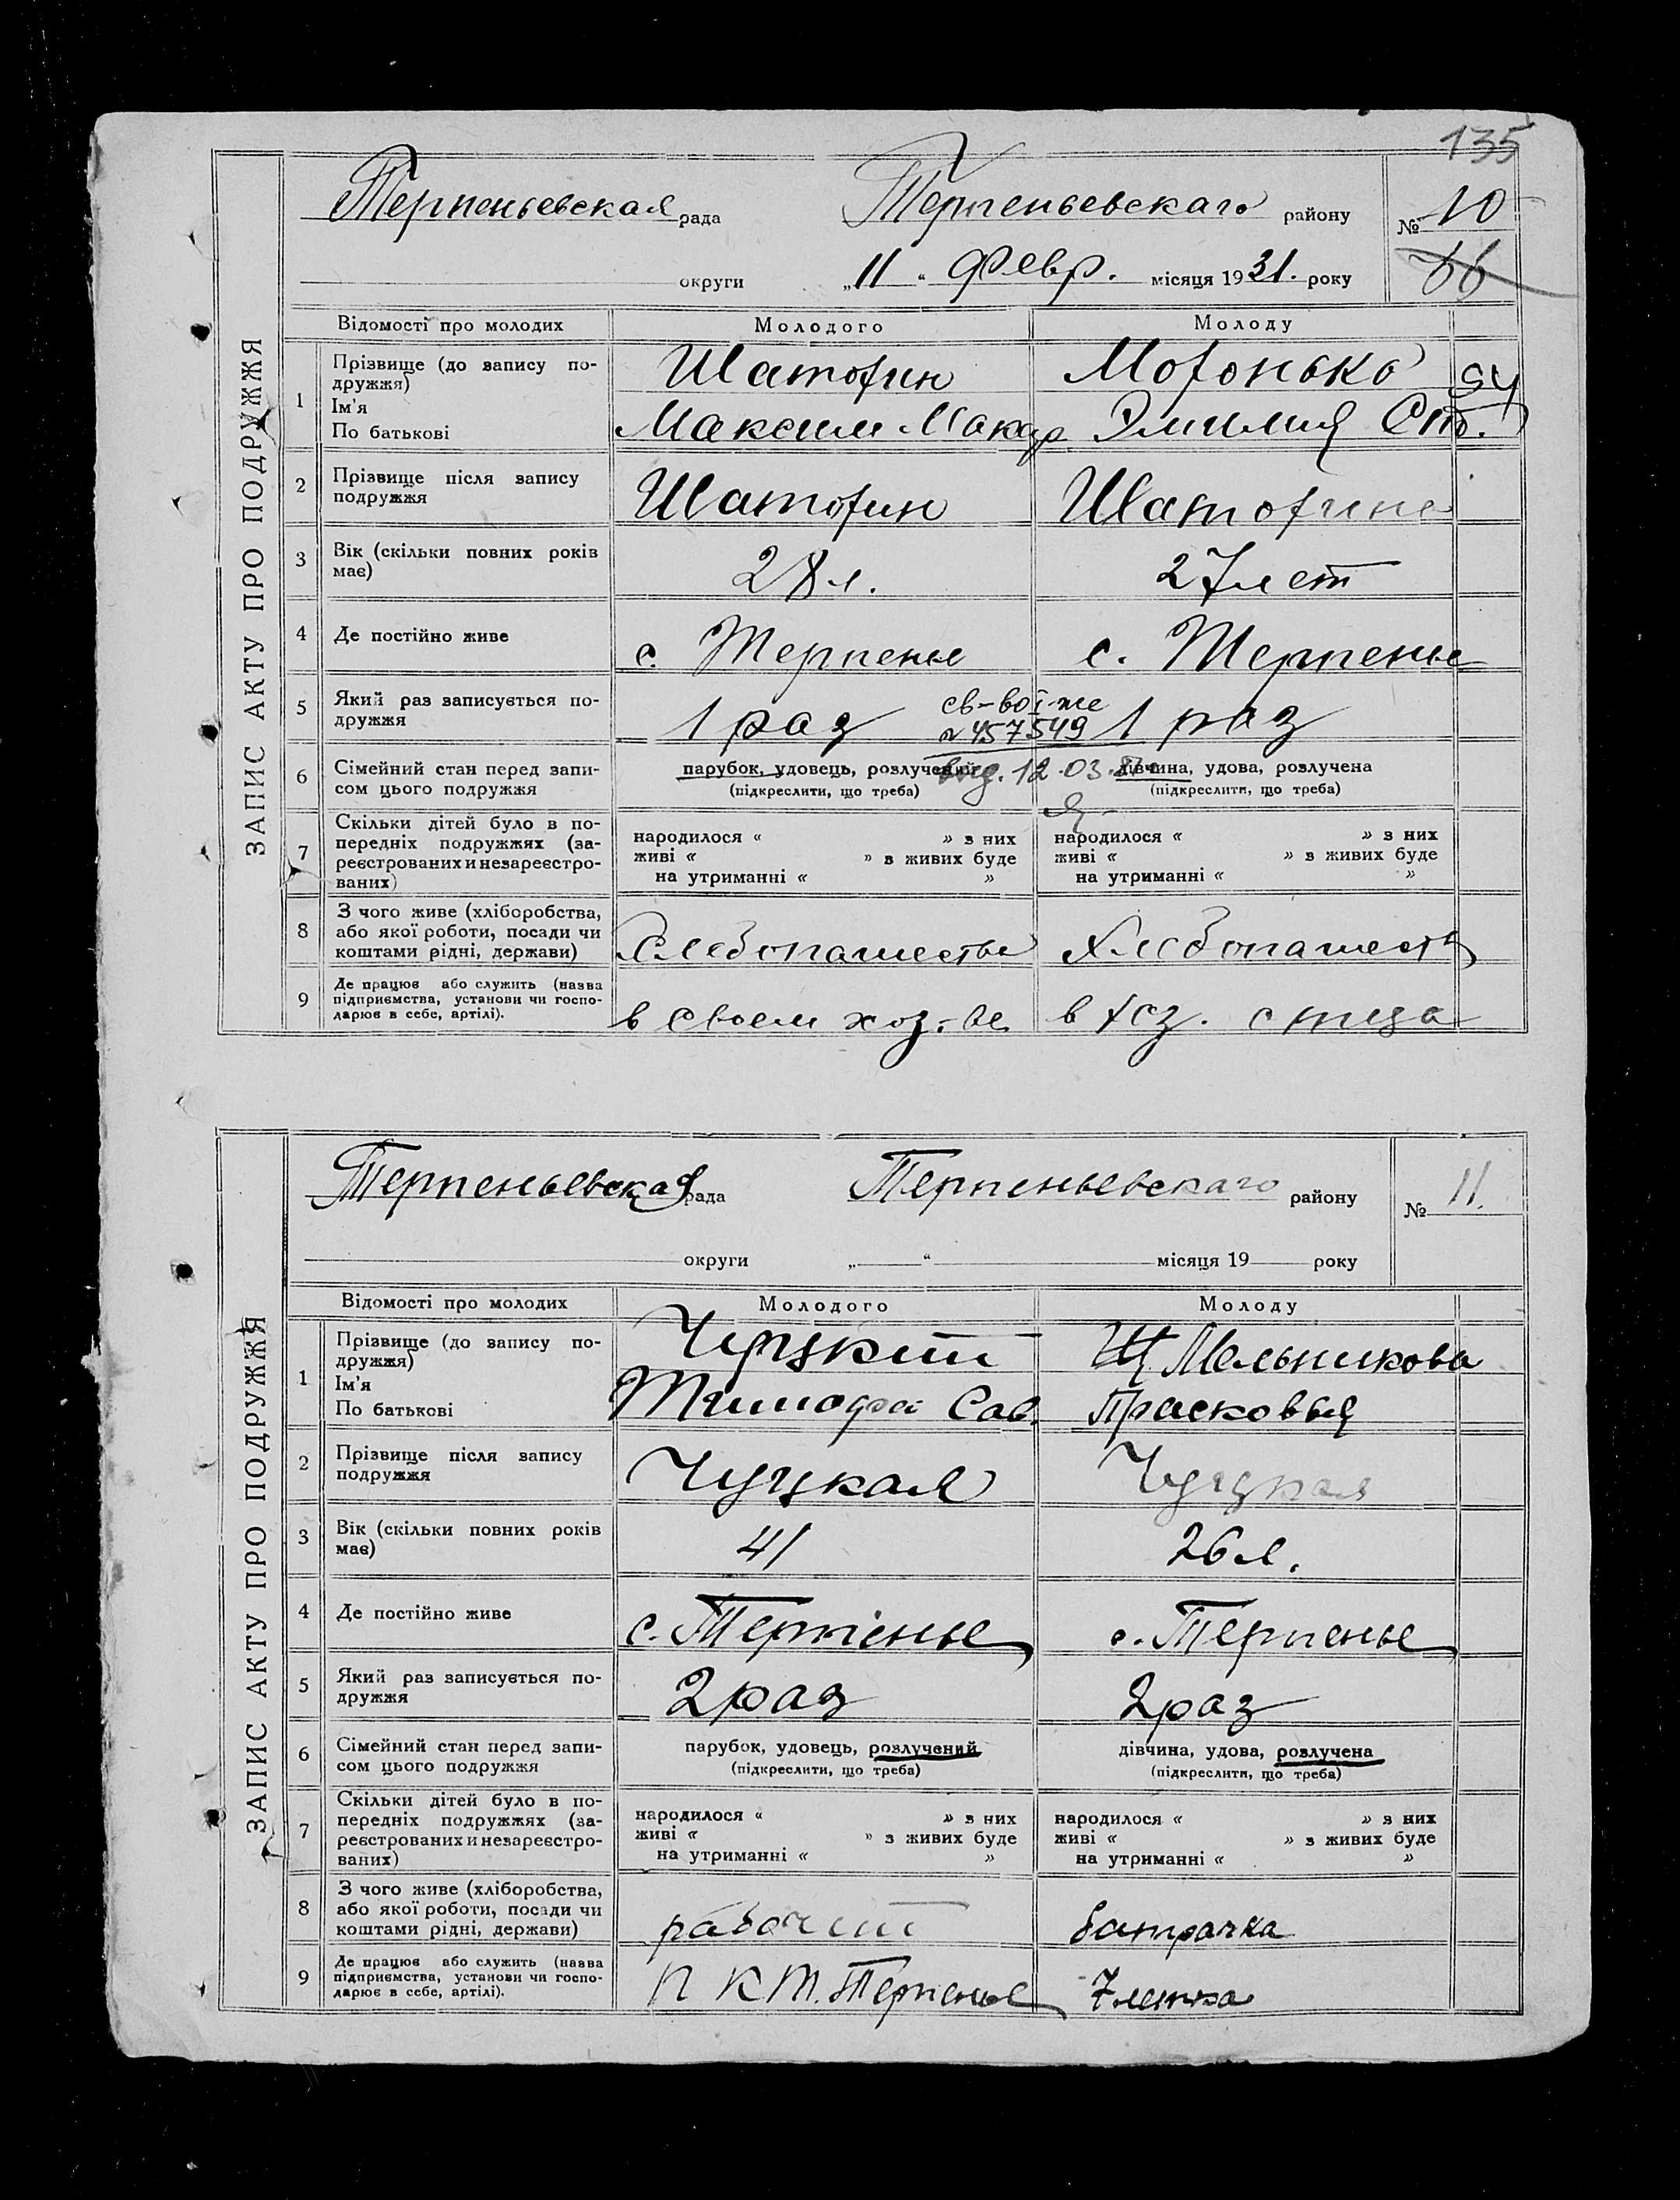 135
ЗАПИС АКТУ ПРО ПОДРУЖЖЯ
Терпеньевская рада Терпеньевскаго району № 10
66
округи „11“ Февр. місяця 1931. року
Відомості про молодих Молодого Молоду
1 Прізвище (до запису по-
дружжя)
Ім'я
По батькові
Шатохин
Максим Макар
Эмилия Ст.
2 Прізвище після запису
подружжя
Шатохин Шатохина
3 Вік (скільки повних років
має)
28 л. 27 лет
4 Де постійно живе
с. Терпенье с. Терпенье
5 Який раз записується по-
дружжя
1 раз 1 раз
св-во І-же
№ 457549
вид. 12.03.
6 Сімейний стан перед запи-
сом цього подружжя
парубок, удовець, розлучений дівчина, удова, розлучена
(підкреслити, що треба) (підкреслити, що треба)
7 Скільки дітей було в по-
передніх подружжях (за-
реєстрованих и незареєстро-
ваних)
народилося « » з них народилося « » з них
живі « » з живих буде живі « » з живих буде
на утриманні « » на утриманні « »
8 З чого живе (хліборобства,
або якої роботи, посади чи
коштами рідні, держави)
Хлебопашество Хлебопашест
9 Де працює або служить (назва
підприємства, установи чи госпо-
дарює в себе, артілі).
в своем хоз-ве в хоз. отца
ЗАПИС АКТУ ПРО ПОДРУЖЖЯ
Терпеньевская рада Терпеньевскаго району № 11.
округи „ “ місяця 19 року
Відомості про молодих Молодого Молоду
1 Прізвище (до запису по-
дружжя)
Ім'я
По батькові
Чуцкий Мельникова
Тимофей Сав. Прасковья
2 Прізвище після запису
подружжя
Чуцкая Чуцкая
3 Вік (скільки повних років
має)
41 26 л.
4 Де постійно живе
с. Терпенье с. Терпенье
5 Який раз записується по-
дружжя
2 раз 2 раз
6 Сімейний стан перед запи-
сом цього подружжя
парубок, удовець, розлучений дівчина, удова, розлучена
(підкреслити, що треба) (підкреслити, що треба)
7 Скільки дітей було в по-
передніх подружжях (за-
реєстрованих и незареєстро-
ваних)
народилося « » з них народилося « » з них
живі « » з живих буде живі « » з живих буде
на утриманні « » на утриманні « »
8 З чого живе (хліборобства,
або якої роботи, посади чи
коштами рідні, держави)
рабочий батрачка
9 Де працює або служить (назва
підприємства, установи чи госпо-
дарює в себе, артілі).
П К Т. Терпенье